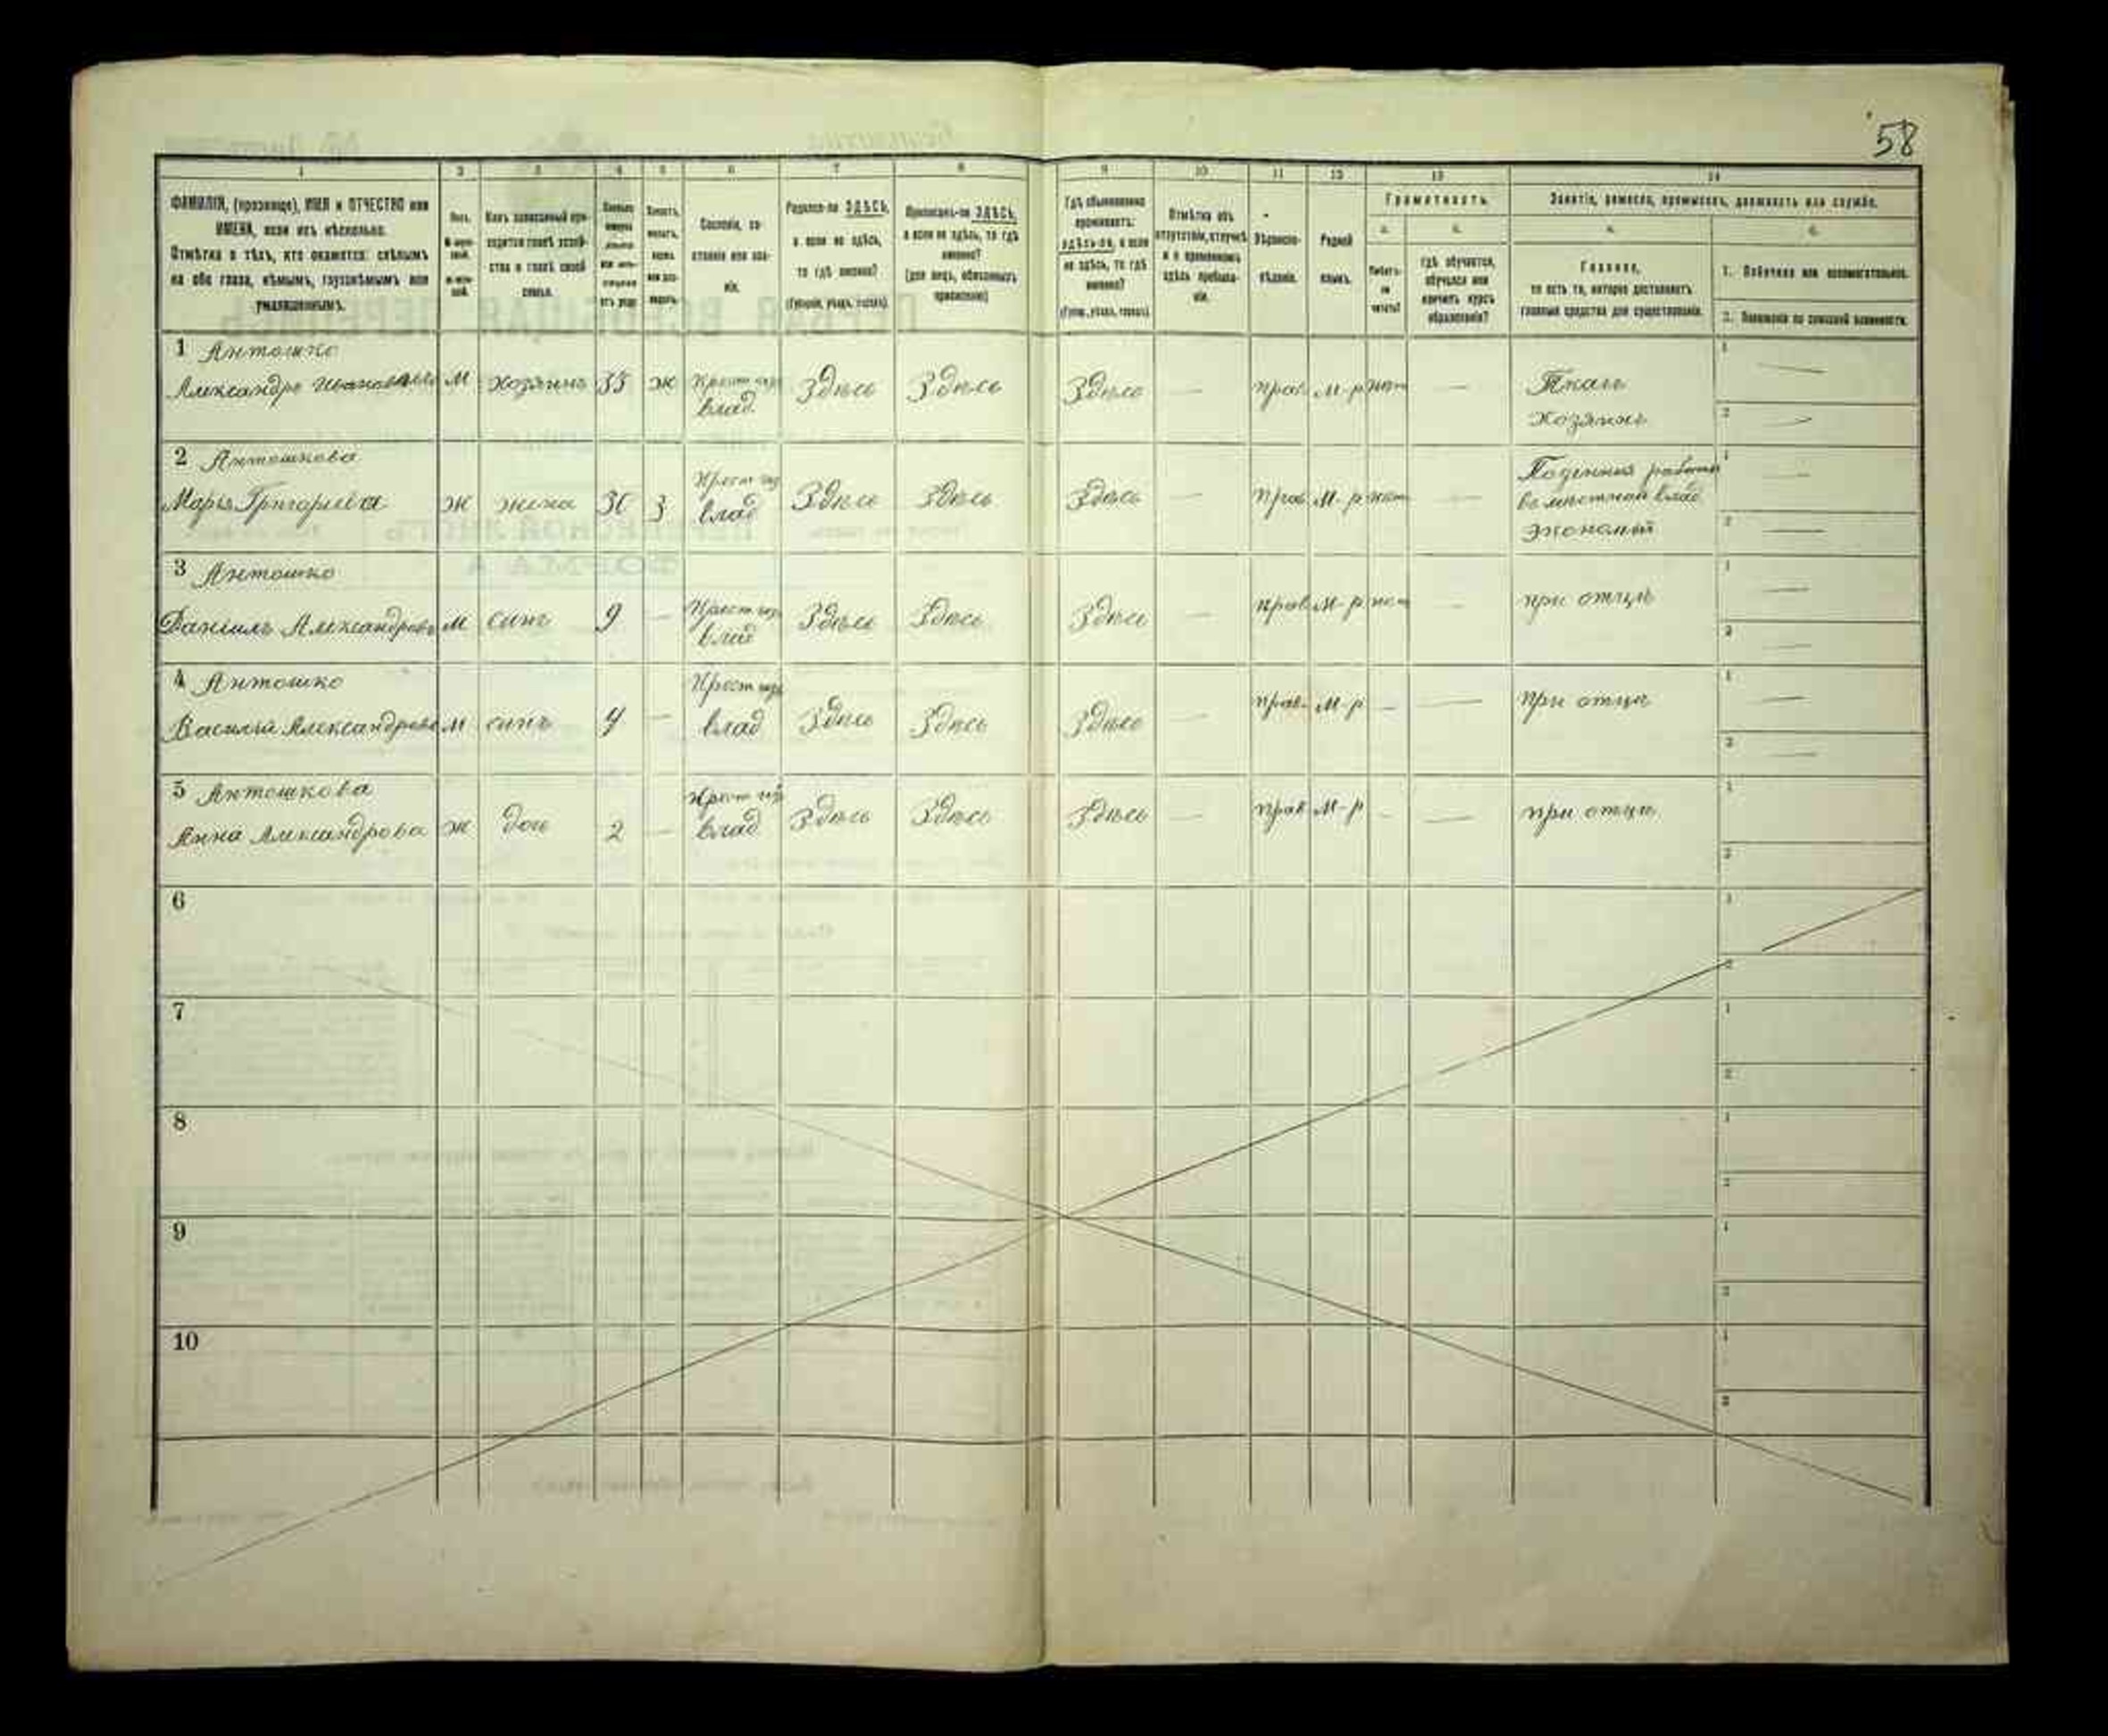 58
1 2 3 4 5 6 7 8 9 10 11 12 13 14
ФАМИЛІЯ, (прозвище), ИМЯ и ОТЧЕСТВО или
ИМЕНА, если ихъ нѣсколько.
Отмѣтка о тѣхъ, кто окажется: слѣпымъ
на оба глаза, нѣмымъ, глухонѣмымъ или
умалишеннымъ.
Полъ.
Какъ записанный при-
ходится главѣ хозяй-
ства и главѣ своей
семьи.
Сословіе, со-
стояніе или зва-
ніе.
Родился-ли ЗДѢСЬ,
а если не здѣсь,
то гдѣ именно?
(Губернія, уѣздъ, городъ).
Приписанъ-ли ЗДѢСЬ,
а если не здѣсь, то гдѣ
именно?
(для лицъ, обязанныхъ
припискою)
Гдѣ обыкновенно
проживаетъ:
здѣсь-ли, а если
не здѣсь, то гдѣ
именно?
(Губер., уѣздъ, городъ).
Отмѣтка объ
отсутствіи, отлучкѣ
и о временномъ
здѣсь пребыва-
ніи.
Вѣроиспо-
вѣданіе.
Родной
языкъ.
Грамотность.
а. б.
Умѣетъ-
ли
читать?
Гдѣ обучается,
обучался или
кончилъ курсъ
образованія?
Занятіе, ремесло, промыселъ, должность или служба.
а. б.
Главное,
то есть то, которое доставляетъ
главныя средства для существованія.
1. Побочное или вспомогательное.
2. Положеніе по воинской повинности.
1 Антошко
Александръ Ивановичъ М хозяинъ 35 ж Крест изъ влад Здѣсь Здѣсь Здѣсь — прав М-р нет — Ткачъ
Хозяинъ
2 Антошкова
Марья Григорьева ж жена 30 з Крест из влад Здѣсь Здѣсь Здѣсь — прав М-р нет — Поденная работа
въ мѣстной влад
экономіи
3 Антошко
Даніилъ Александровъ М сынъ 9 — Крест изъ влад Здѣсь Здѣсь Здѣсь — прав М-р нет — при отцѣ
4 Антошко
Василій Александровъ М сынъ 4 — Крест изъ влад Здѣсь Здѣсь Здѣсь — прав. М-р — — при отцѣ
5 Антошкова
Анна Александрова ж дочь 2 — Крест изъ влад Здѣсь Здѣсь Здѣсь — прав М-р - — при отцѣ
6
7
8
9
10